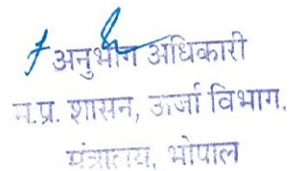 अनुभाग अधिकारी
म.प्र. शासन, ऊर्जा विभाग,
मंत्रालय, भोपाल